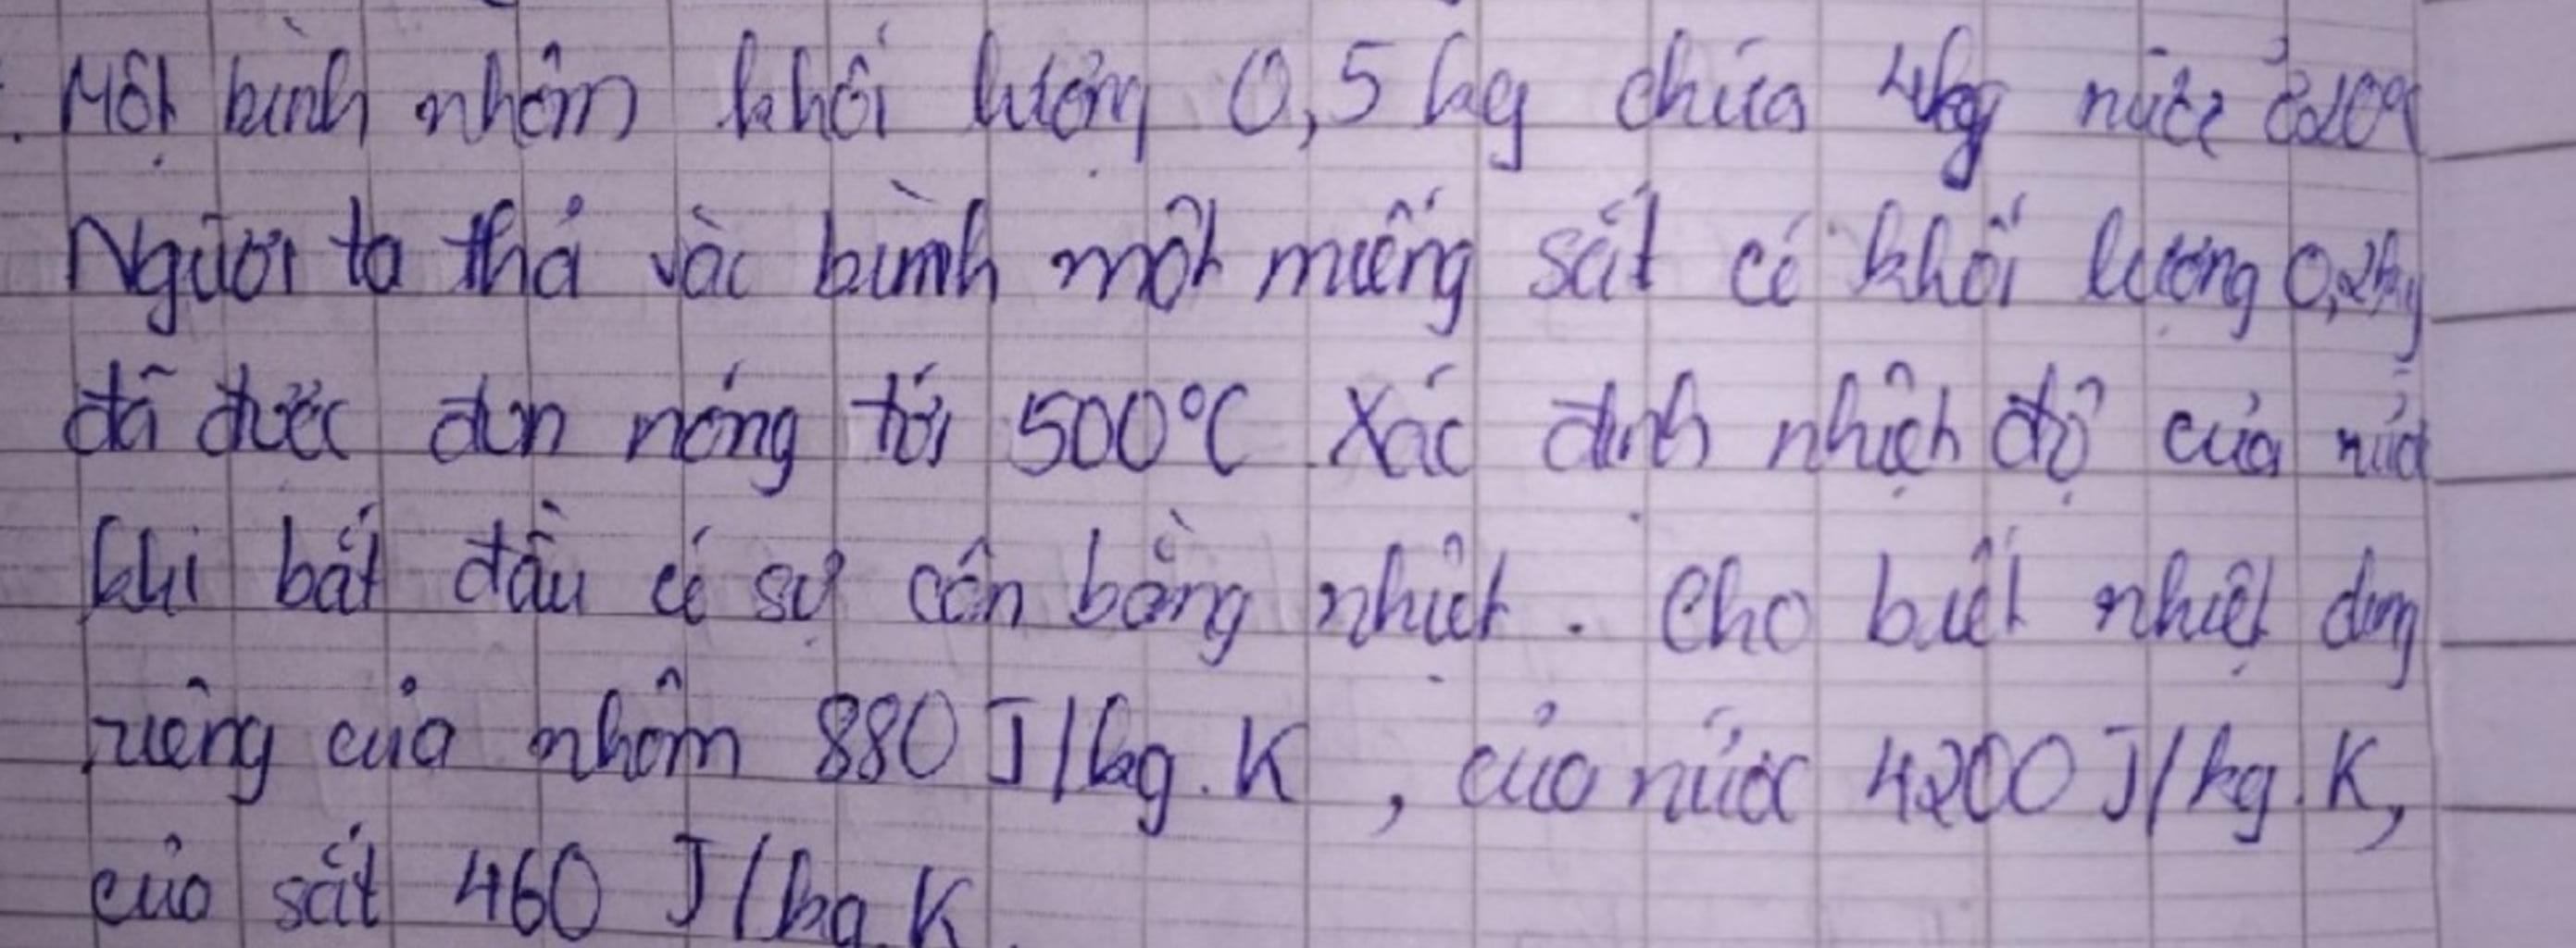 Một bình nhôm khối lượng 0,5 kg chứa 4kg nước ở 20°C
Người ta thả vào bình một miếng sắt có khối lượng 0,2kg
đã được đun nóng tới 500°C Xác định nhiệt độ của nước
khi bắt đầu có sự cân bằng nhiệt. Cho biết nhiệt dung
riêng của nhôm 880 J/kg.K, của nước 4200 J/kg.K,
của sắt 460 J/kg.K.